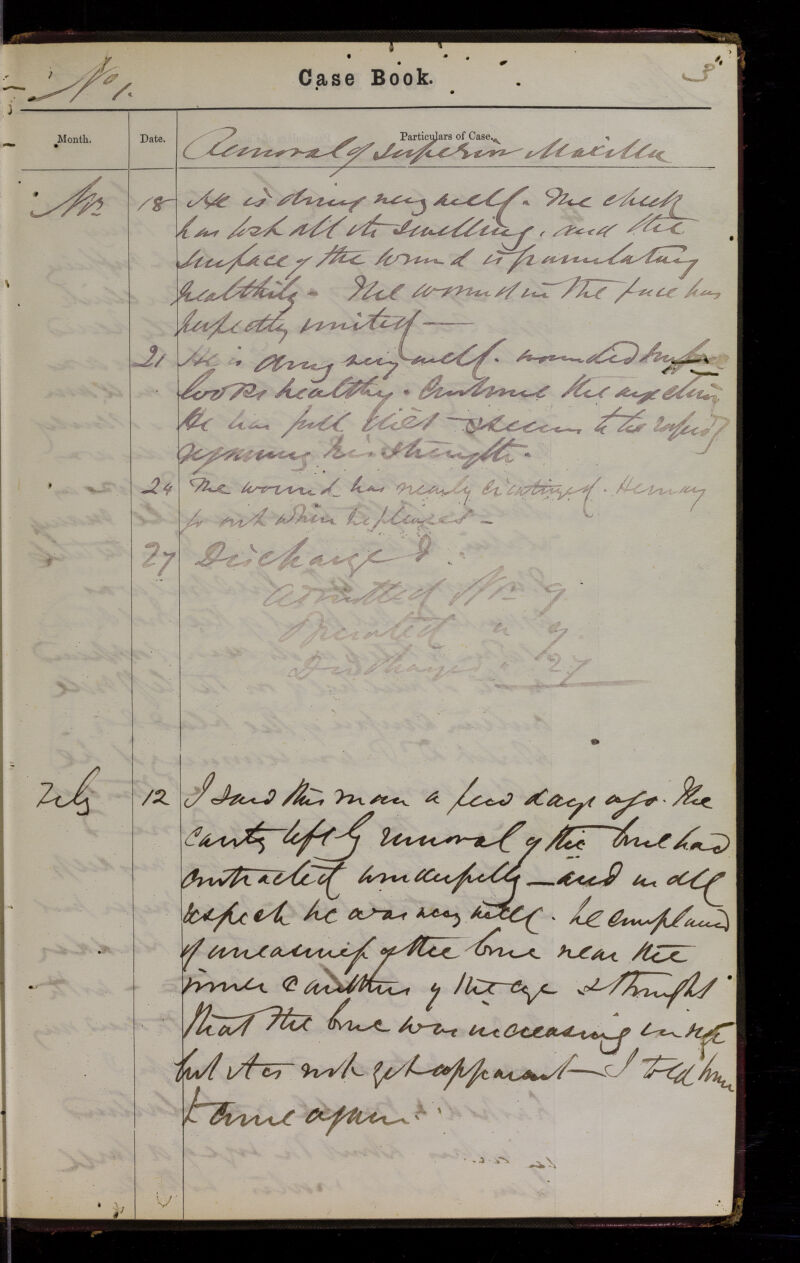 No 1.
Case Book.
3
Month.
Date.
Particulars of Case.
Removal of superior Maxilla
Novr 18 He is doing very well. The cheek
has lost all its swelling, and the
surface of the wound is granulating
healthily - The wound in the face has
perfectly united —
21 He is doing very well. wounded surface
looks healthy. Continue the injection
He has full diet - seems to be rapidly
regaining his strength.
24 The wound has nearly cicatrized. He may
go out when he pleases -
27 Discharged.
Admitted Novr 9
Operated " 9
Discharged " 27
Feby 12 I saw this man a few days ago. The
cavity left by removal of the bone had
contracted wonderfully — and in all
respects he was very well. he complained
of uneasiness of the bone near the
inner canthus of the eye & thought
that the bone was increasing in size
but it is not yet apparent — I told him
to come again.